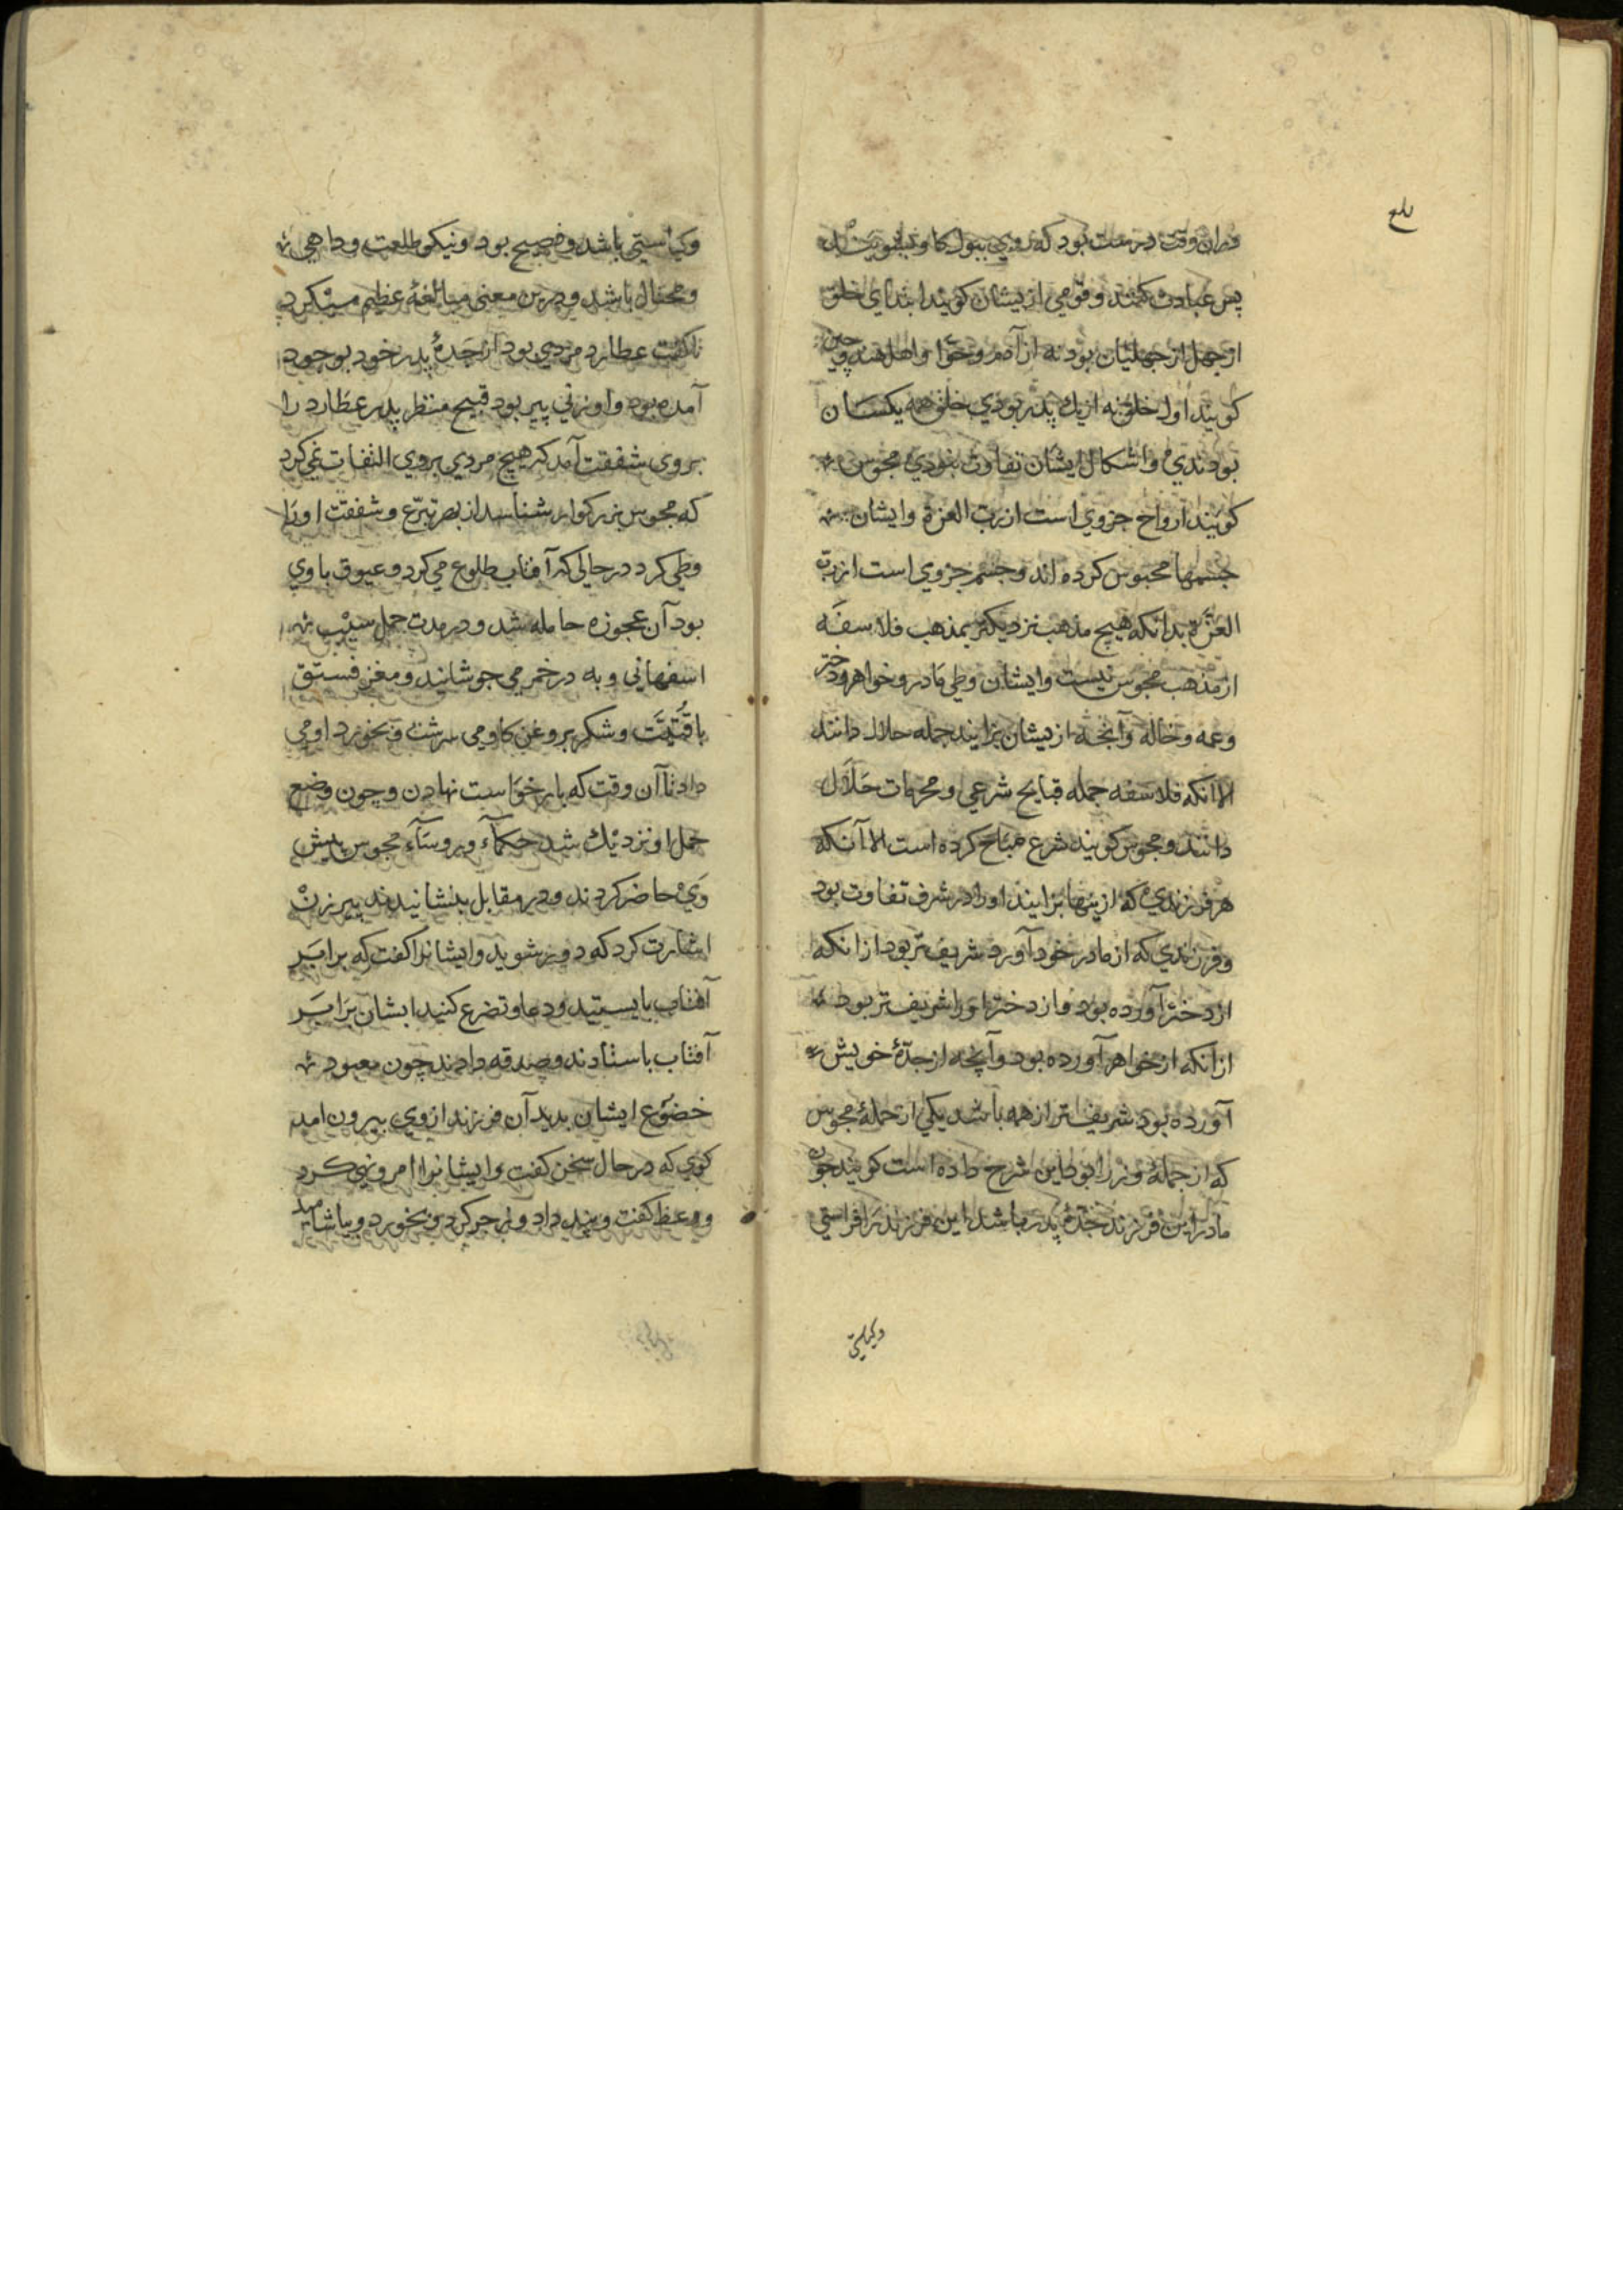 بلغ
و آن وقت درست بود که روی ببول گاو بشویند
پس عبادت کنند و قومی ازیشان کویند ابتدای خلق
از جهل از جهلیان بود نه از آدم و حوّا و اهل هند و چین
کویند اول خلق نه از یك پدر بودی خلق همه یکسان
بودندی و اشکال ایشان تفاوت نبودی مجوس
کویند ارواح جزوی است از رب العزة و ایشان
جسمها محبوس کرده اند و جسم جزوی است از رب
العزّة بدانکه هیچ مذهب نزدیکتر بمذهب فلاسفه
از مذهب مجوس نیست و ایشان وطی مادر و خواهر و دختر
و عمه و خاله و آنچه ازیشان بزایند جمله حلال دانند
الا آنکه فلاسفه جمله قبایح شرعی و محرمات حلال
دانند و مجوس کویند شرع مباح کرده است الا آنکه
هر فرزندی که ازینها بزایند او را در شرف تفاوت بود
و فرزندی که از مادر خود آورد شریف تر بود از انکه
از دختر آورده بود و از دختر او را شریف تر بود
از انکه از خواهر آورده بود و آنچه از جدّهٔ خویش
آورده بود شریفتر از همه باشد یکی از جملهٔ مجوس
که از جملهٔ وزرا بود این شرح داده است کویند چون
مادر این فرزند جدّهٔ پدر باشد این فرزند را فراستی
وکیاستی
وکیاستی باشد و فصیح بود و نیکو طلعت و داهی
و محتال باشد و درین معنی مبالغهٔ عظیم میکرد
تا گفت عطارد مردی بود از جدهٔ پدر خود بوجود
آمده بود و او زنی پیر بود قبیح منظر پدر عطارد را
بروی شفقت آمد که هیچ مردی بروی التفات نمی کرد
که مجوس بزرکوار شناسد از بهر تبرّع و شفقت او را
وطی کرد در حالی که آفتاب طلوع می کرد و عیوق با وی
بود آن عجوزه حامله شد و در مدت حمل سیب
اسفهانی و به در خمر می جوشانید و مغز فستق
با و شکر بروغن کاو می سرشت و بخورد او می
داد تا آن وقت که بار خواست نهادن و چون وضع
حمل او نزدیك شد حکماء و روساء مجوس پیش
وی حاضر کردند و در مقابل بنشانیدند پیرزن
اشارت کرد که دور شوید و ایشانرا کفت که برابر
آفتاب بایستید و دعا و تضرع کنید ایشان برابر
آفتاب باستادند و صدقه دادند چون معبود
خضوع ایشان بدید آن فرزند از وی بیرون امد
کوی که در حال سخن کفت و ایشانرا امر و نهی کرد
و وعظ کفت و پند داد و زجر کرد و بخورد و بیاشامید